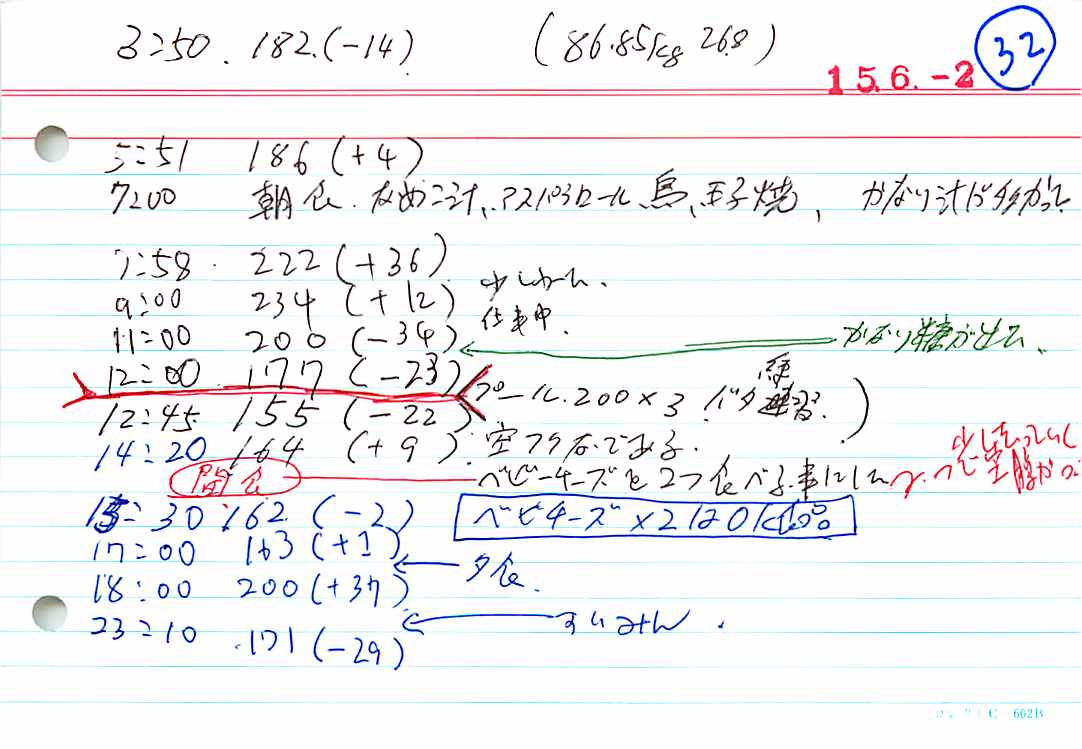 3:50. 182.(-14) (86.85kg 26.8)
32
15.6.-2
5:51 186 (+4)
7:00 朝食. なめこ汁、アスパラロール、馬、玉子焼、 かなり汁が多かった
7:58. 222 (+36)
9:00 234 (+12) 少し
11:00 200 (-34) 仕事中.
かなり糖が出て、
12:00 177 (-23)
プール.200×3 バタ練習.)
12:45 155 (-22)
14:20 164 (+9). 空フクなである.
間食 ベビーチーズを2つ食べる事にした
少し
15:30 162 (-2) ベビチーズ×2 120kcal
17:00 163 (+1)
夕食.
18:00 200 (+37)
すいみん.
23:10 171 (-29)
C-602B